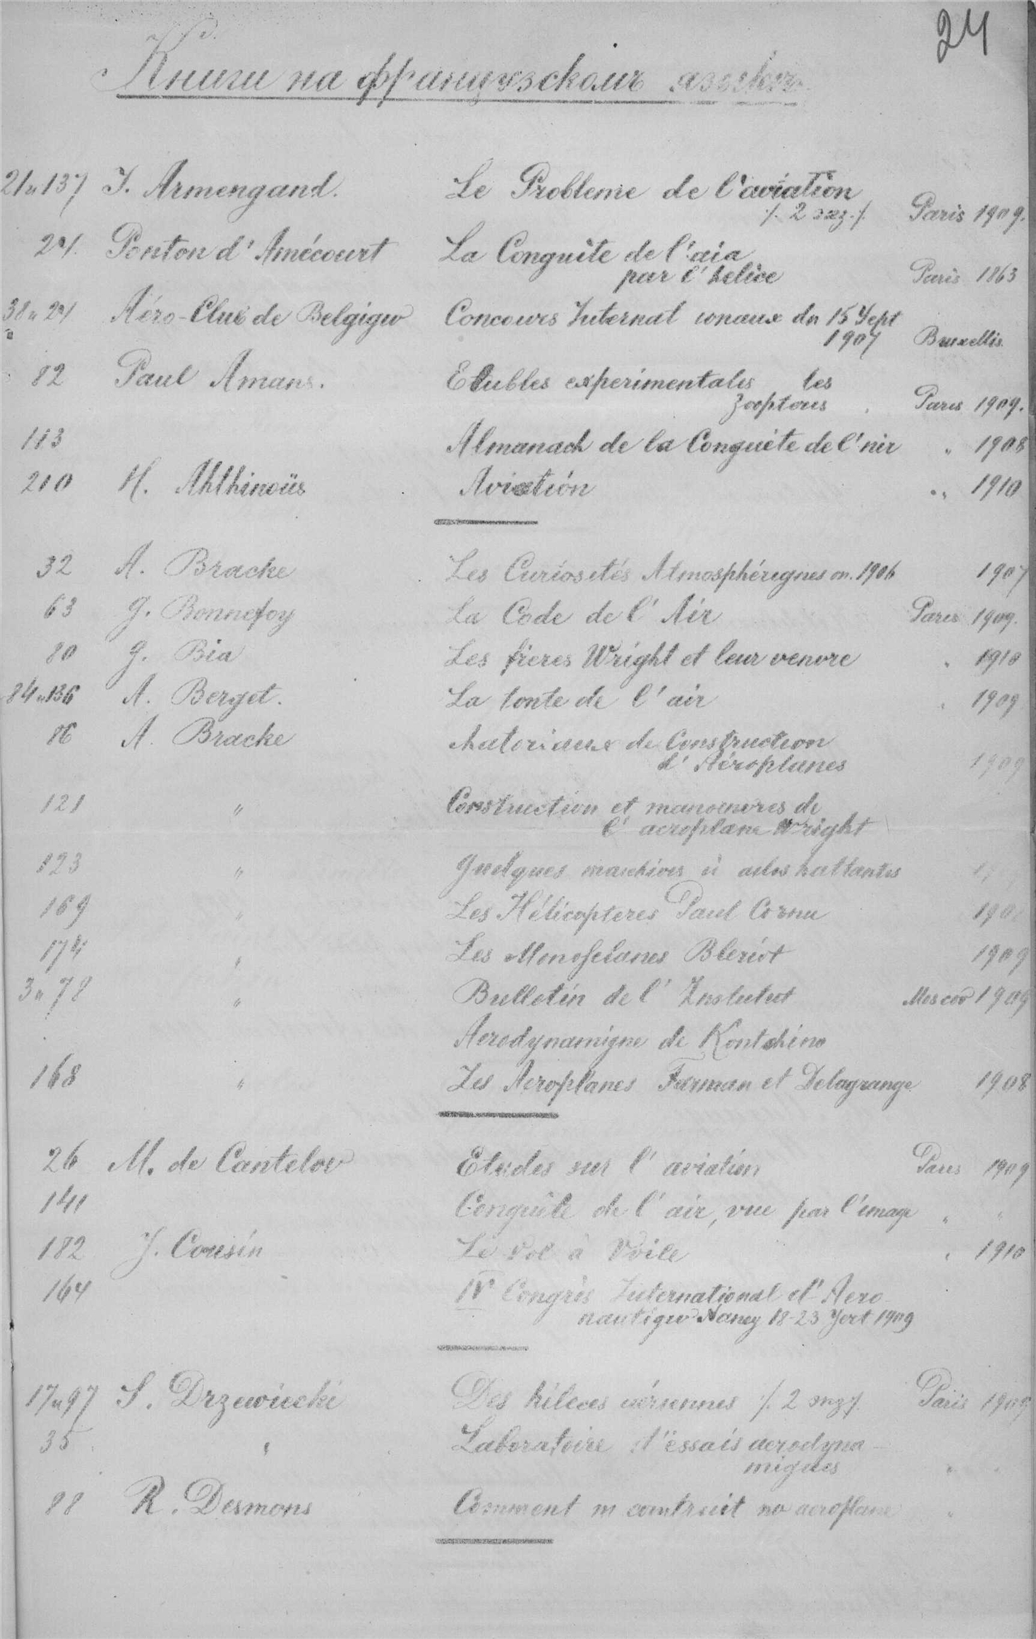 24
Книги на французскомъ языкѣ
21 и 137 J. Armengand. Le Probleme de l'aviation
/. 2 экз./. Paris 1909.
24. Ponton d'Amécourt La Conquîte de l'aia
par l'helice Paris 1863
38 и 24 Aéro-Club de Belgique Concours Internat ionaux du 15 Sept
1907 Bruxellis
82 Paul Amans. Etubles experimentales les
Zooptous Paris 1909.
113 Almanach de la Conquéte de l'air " 1908
210 H. Ahthinoüs Aviation " 1910
32 A. Bracke Les Curiosités Atmosphériques en 1906 1907
63 G. Bonnefoy La Code de l'Air Paris 1909.
80 G. Bia Les freres Wright et leur oenvre " 1910
84 и 136 A. Berget. La toute de l'air " 1909
86 A. Bracke Materiaux de Construction
d'Aéroplanes 1909
121 " Construction et manoenvres de
l'aeroplane Wright
123 " Quelques machines à ailes battantes
169 " Les Hélicopteres Paul Cornu 190
174 " Les Monoplanes Bleriot 1909
3 и 78 " Bulletin de l'Institut Moscou 1909
Aerodynamigne de Koutchino
168 " Les Aeroplanes Farman et Delagrange 1908
26 M. de Canteloe Etudes sur l'aviation Paris 1909
141 Conquête de l'air, vue par l'image " "
182 J. Cousin Le Vol à Voile " 1910
164 IV Congrès International d'Aero
nautique Nancy 18-23 Sept 1909
17 и 97 S. Drzewiecki Des hélices aériennes /. 2 экз/. Paris 1909
35 " Laboratoire d'essais aerodyna-
miques "
88 R. Desmons Comment on contruit no aeroplane "